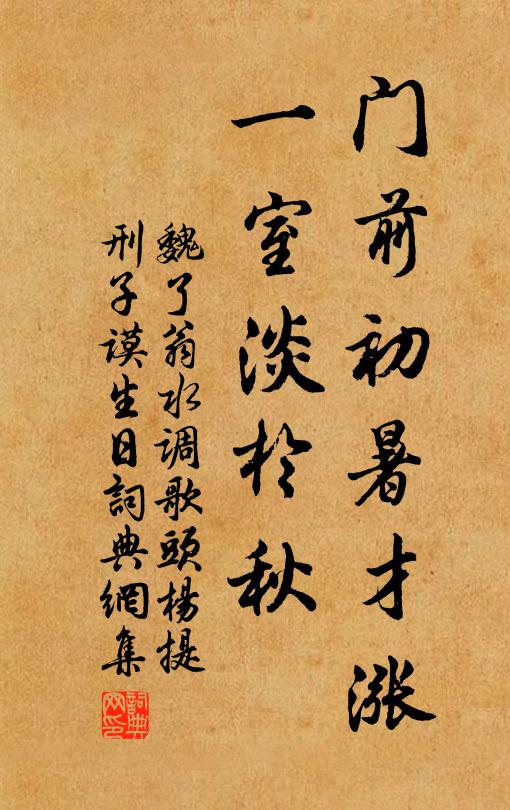 门前初暑才涨
一室淡於秋
魏了翁水调歌頭楊提
刑子谟生日詞典網集
詞典
网印